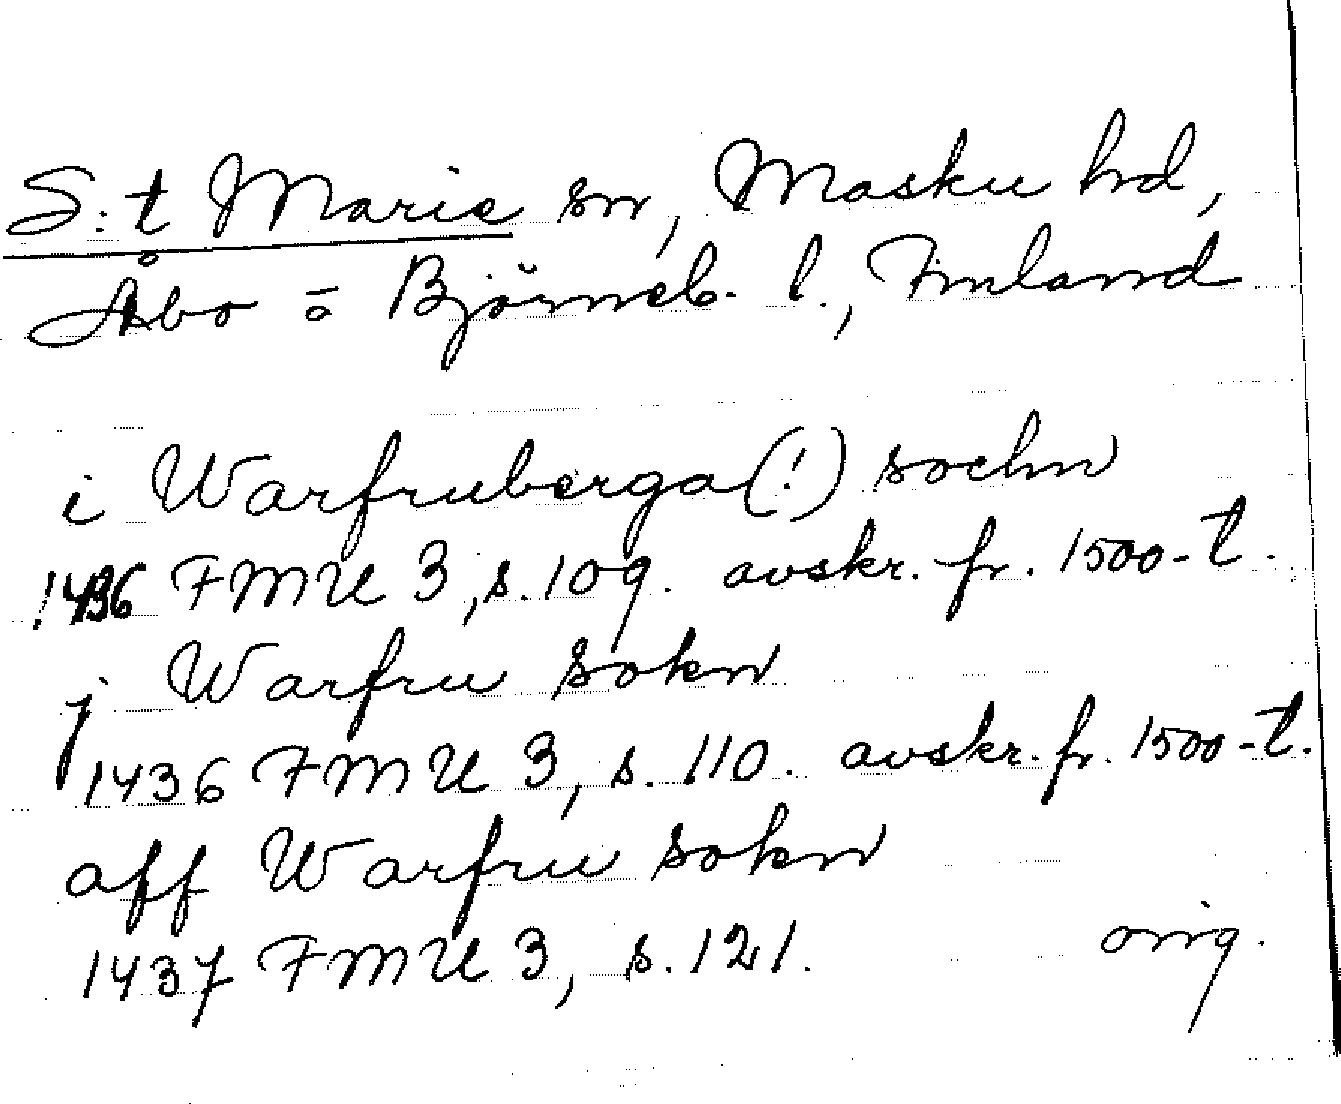 S:t Marie sn, Masku hd,
Åbo o Björneb. l., Finland
i Warfruberga(!) sochn
1436 FMU 3, s. 109. avskr. fr. 1500-t.
j Warfru sokn
1436 FMU 3, s. 110. avskr. fr. 1500-t.
aff Warfru sokn
1437 FMU 3, s. 121. orig.